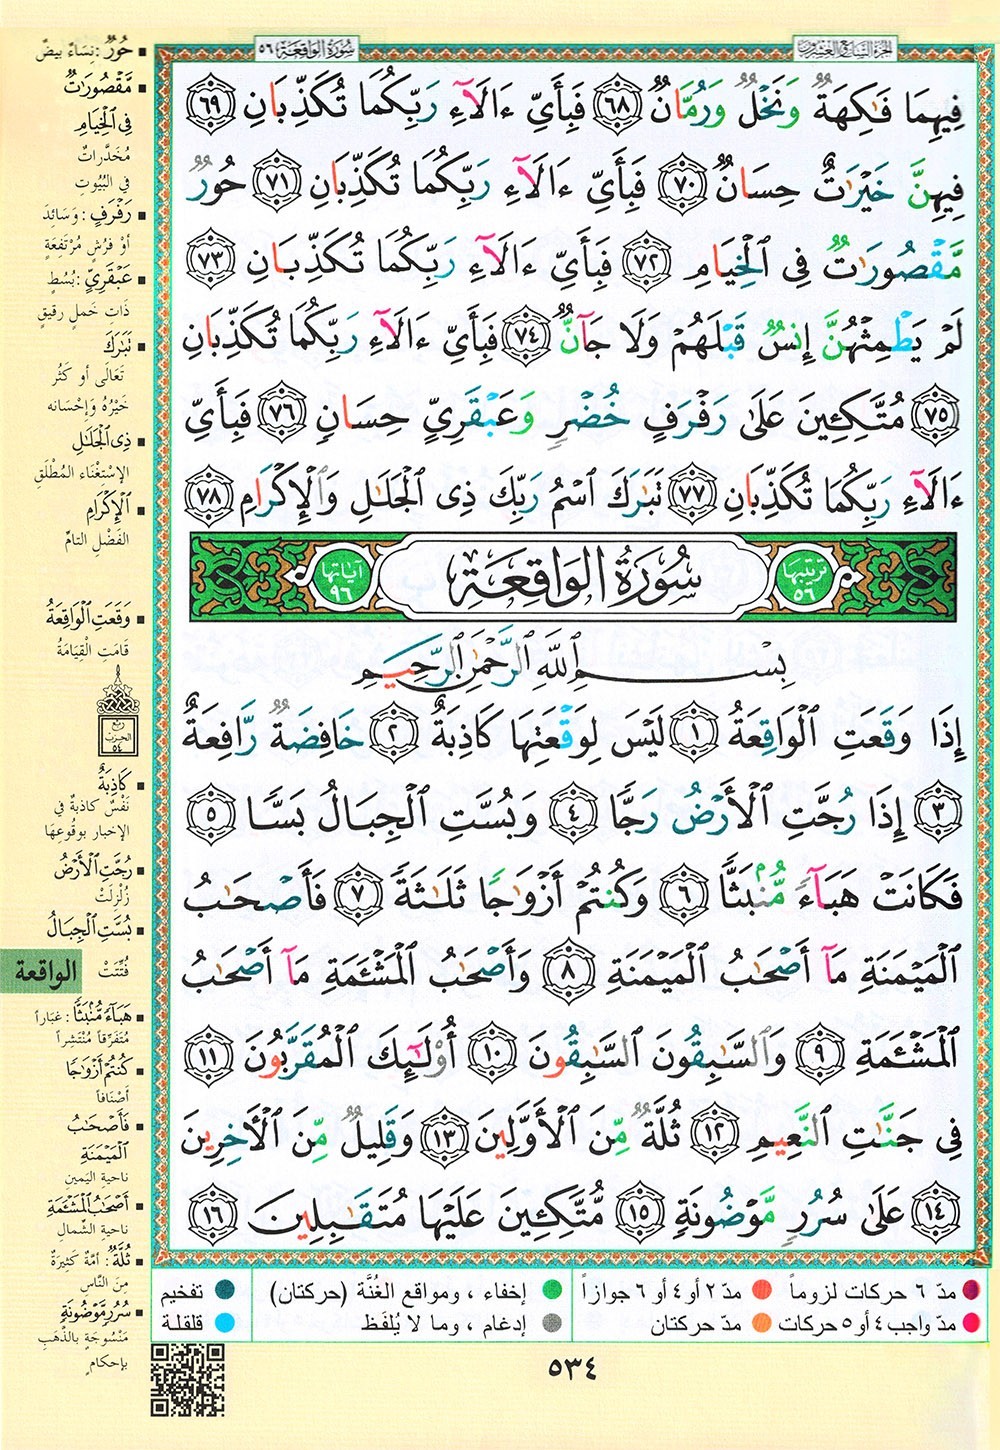 الجزء السابع والعشرون
سورة الواقعة ٥٦
فِيهِمَا فَٰكِهَةٌ وَنَخْلٌ وَرُمَّانٌ ٦٨ فَبِأَيِّ ءَالَآءِ رَبِّكُمَا تُكَذِّبَانِ ٦٩
فِيهِنَّ خَيْرَٰتٌ حِسَانٌ ٧٠ فَبِأَيِّ ءَالَآءِ رَبِّكُمَا تُكَذِّبَانِ ٧١ حُورٌ
مَّقْصُورَٰتٌ فِى ٱلْخِيَامِ ٧٢ فَبِأَيِّ ءَالَآءِ رَبِّكُمَا تُكَذِّبَانِ ٧٣
لَمْ يَطْمِثْهُنَّ إِنسٌ قَبْلَهُمْ وَلَا جَآنٌّ ٧٤ فَبِأَيِّ ءَالَآءِ رَبِّكُمَا تُكَذِّبَانِ
٧٥ مُتَّكِـِٔينَ عَلَىٰ رَفْرَفٍ خُضْرٍ وَعَبْقَرِيٍّ حِسَانٍ ٧٦ فَبِأَيِّ
ءَالَآءِ رَبِّكُمَا تُكَذِّبَانِ ٧٧ تَبَٰرَكَ ٱسْمُ رَبِّكَ ذِى ٱلْجَلَٰلِ وَٱلْإِكْرَامِ ٧٨
ترتيبها ٥٦ سُورَةُ الوَاقِعَةِ آياتها ٩٦
بِسْمِ ٱللَّهِ ٱلرَّحْمَٰنِ ٱلرَّحِيمِ
إِذَا وَقَعَتِ ٱلْوَاقِعَةُ ١ لَيْسَ لِوَقْعَتِهَا كَاذِبَةٌ ٢ خَافِضَةٌ رَّافِعَةٌ
٣ إِذَا رُجَّتِ ٱلْأَرْضُ رَجًّا ٤ وَبُسَّتِ ٱلْجِبَالُ بَسًّا ٥
فَكَانَتْ هَبَآءً مُّنۢبَثًّا ٦ وَكُنتُمْ أَزْوَٰجًا ثَلَٰثَةً ٧ فَأَصْحَٰبُ
ٱلْمَيْمَنَةِ مَآ أَصْحَٰبُ ٱلْمَيْمَنَةِ ٨ وَأَصْحَٰبُ ٱلْمَشْـَٔمَةِ مَآ أَصْحَٰبُ
ٱلْمَشْـَٔمَةِ ٩ وَٱلسَّٰبِقُونَ ٱلسَّٰبِقُونَ ١٠ أُو۟لَٰٓئِكَ ٱلْمُقَرَّبُونَ ١١
فِى جَنَّٰتِ ٱلنَّعِيمِ ١٢ ثُلَّةٌ مِّنَ ٱلْأَوَّلِينَ ١٣ وَقَلِيلٌ مِّنَ ٱلْءَاخِرِينَ
١٤ عَلَىٰ سُرُرٍ مَّوْضُونَةٍ ١٥ مُّتَّكِـِٔينَ عَلَيْهَا مُتَقَٰبِلِينَ ١٦
حُورٌ : نِسَاءٌ بيضٌ
مَّقْصُورَٰتٌ
فِى ٱلْخِيَامِ
مُخَدَّراتٌ
في البُيُوتِ
رَفْرَفٍ : وَسَائِدَ
أوْ فُرُشٍ مُرْتَفِعَةٍ
عَبْقَرِيٍّ : بُسُطٍ
ذَاتِ خَملٍ رقيقٍ
تَبَٰرَكَ
تَعَالَى أو كَثُر
خَيْرُهُ وَإحْسَانه
ذِى ٱلْجَلَٰلِ
الإسْتِغْنَاء المُطْلَق
ٱلْإِكْرَامِ
الفَضْلِ التامّ
وَقَعَتِ ٱلْوَاقِعَةُ
قَامَتِ الْقِيَامَةُ
ربع
الحزب
٥٤
كَاذِبَةٌ
نَفْسٌ كاذِبةٌ في
الإخبار بوقُوعِهَا
رُجَّتِ ٱلْأَرْضُ
زُلْزِلَتْ
بُسَّتِ ٱلْجِبَالُ
فُتِّتَتْ
الواقعة
هَبَآءً مُّنۢبَثًّا : غباراً
مُتَفَرِّقاً مُنْتَشِراً
كُنتُمْ أَزْوَٰجًا
أصْنَافاً
فَأَصْحَٰبُ
ٱلْمَيْمَنَةِ
ناحيةِ اليَمين
أَصْحَٰبُ ٱلْمَشْـَٔمَةِ
ناحيةِ الشِّمالِ
ثُلَّةٌ : أمَّةٌ كَثِيرَةٌ
مِنَ النَّاسِ
سُرُرٍ مَّوْضُونَةٍ
مَنْسُوجَةٍ بالذَّهَبِ
بإحكامٍ
مدّ ٦ حركات لزوماً
مدّ ٢ أو ٤ أو ٦ جوازاً
إخفاء ، ومواقع الغُنَّة (حركتان)
تفخيم
مدّ واجب ٤ أو ٥ حركات
مدّ حركتان
إدغام ، وما لا يُلفَظ
قلقلة
٥٣٤